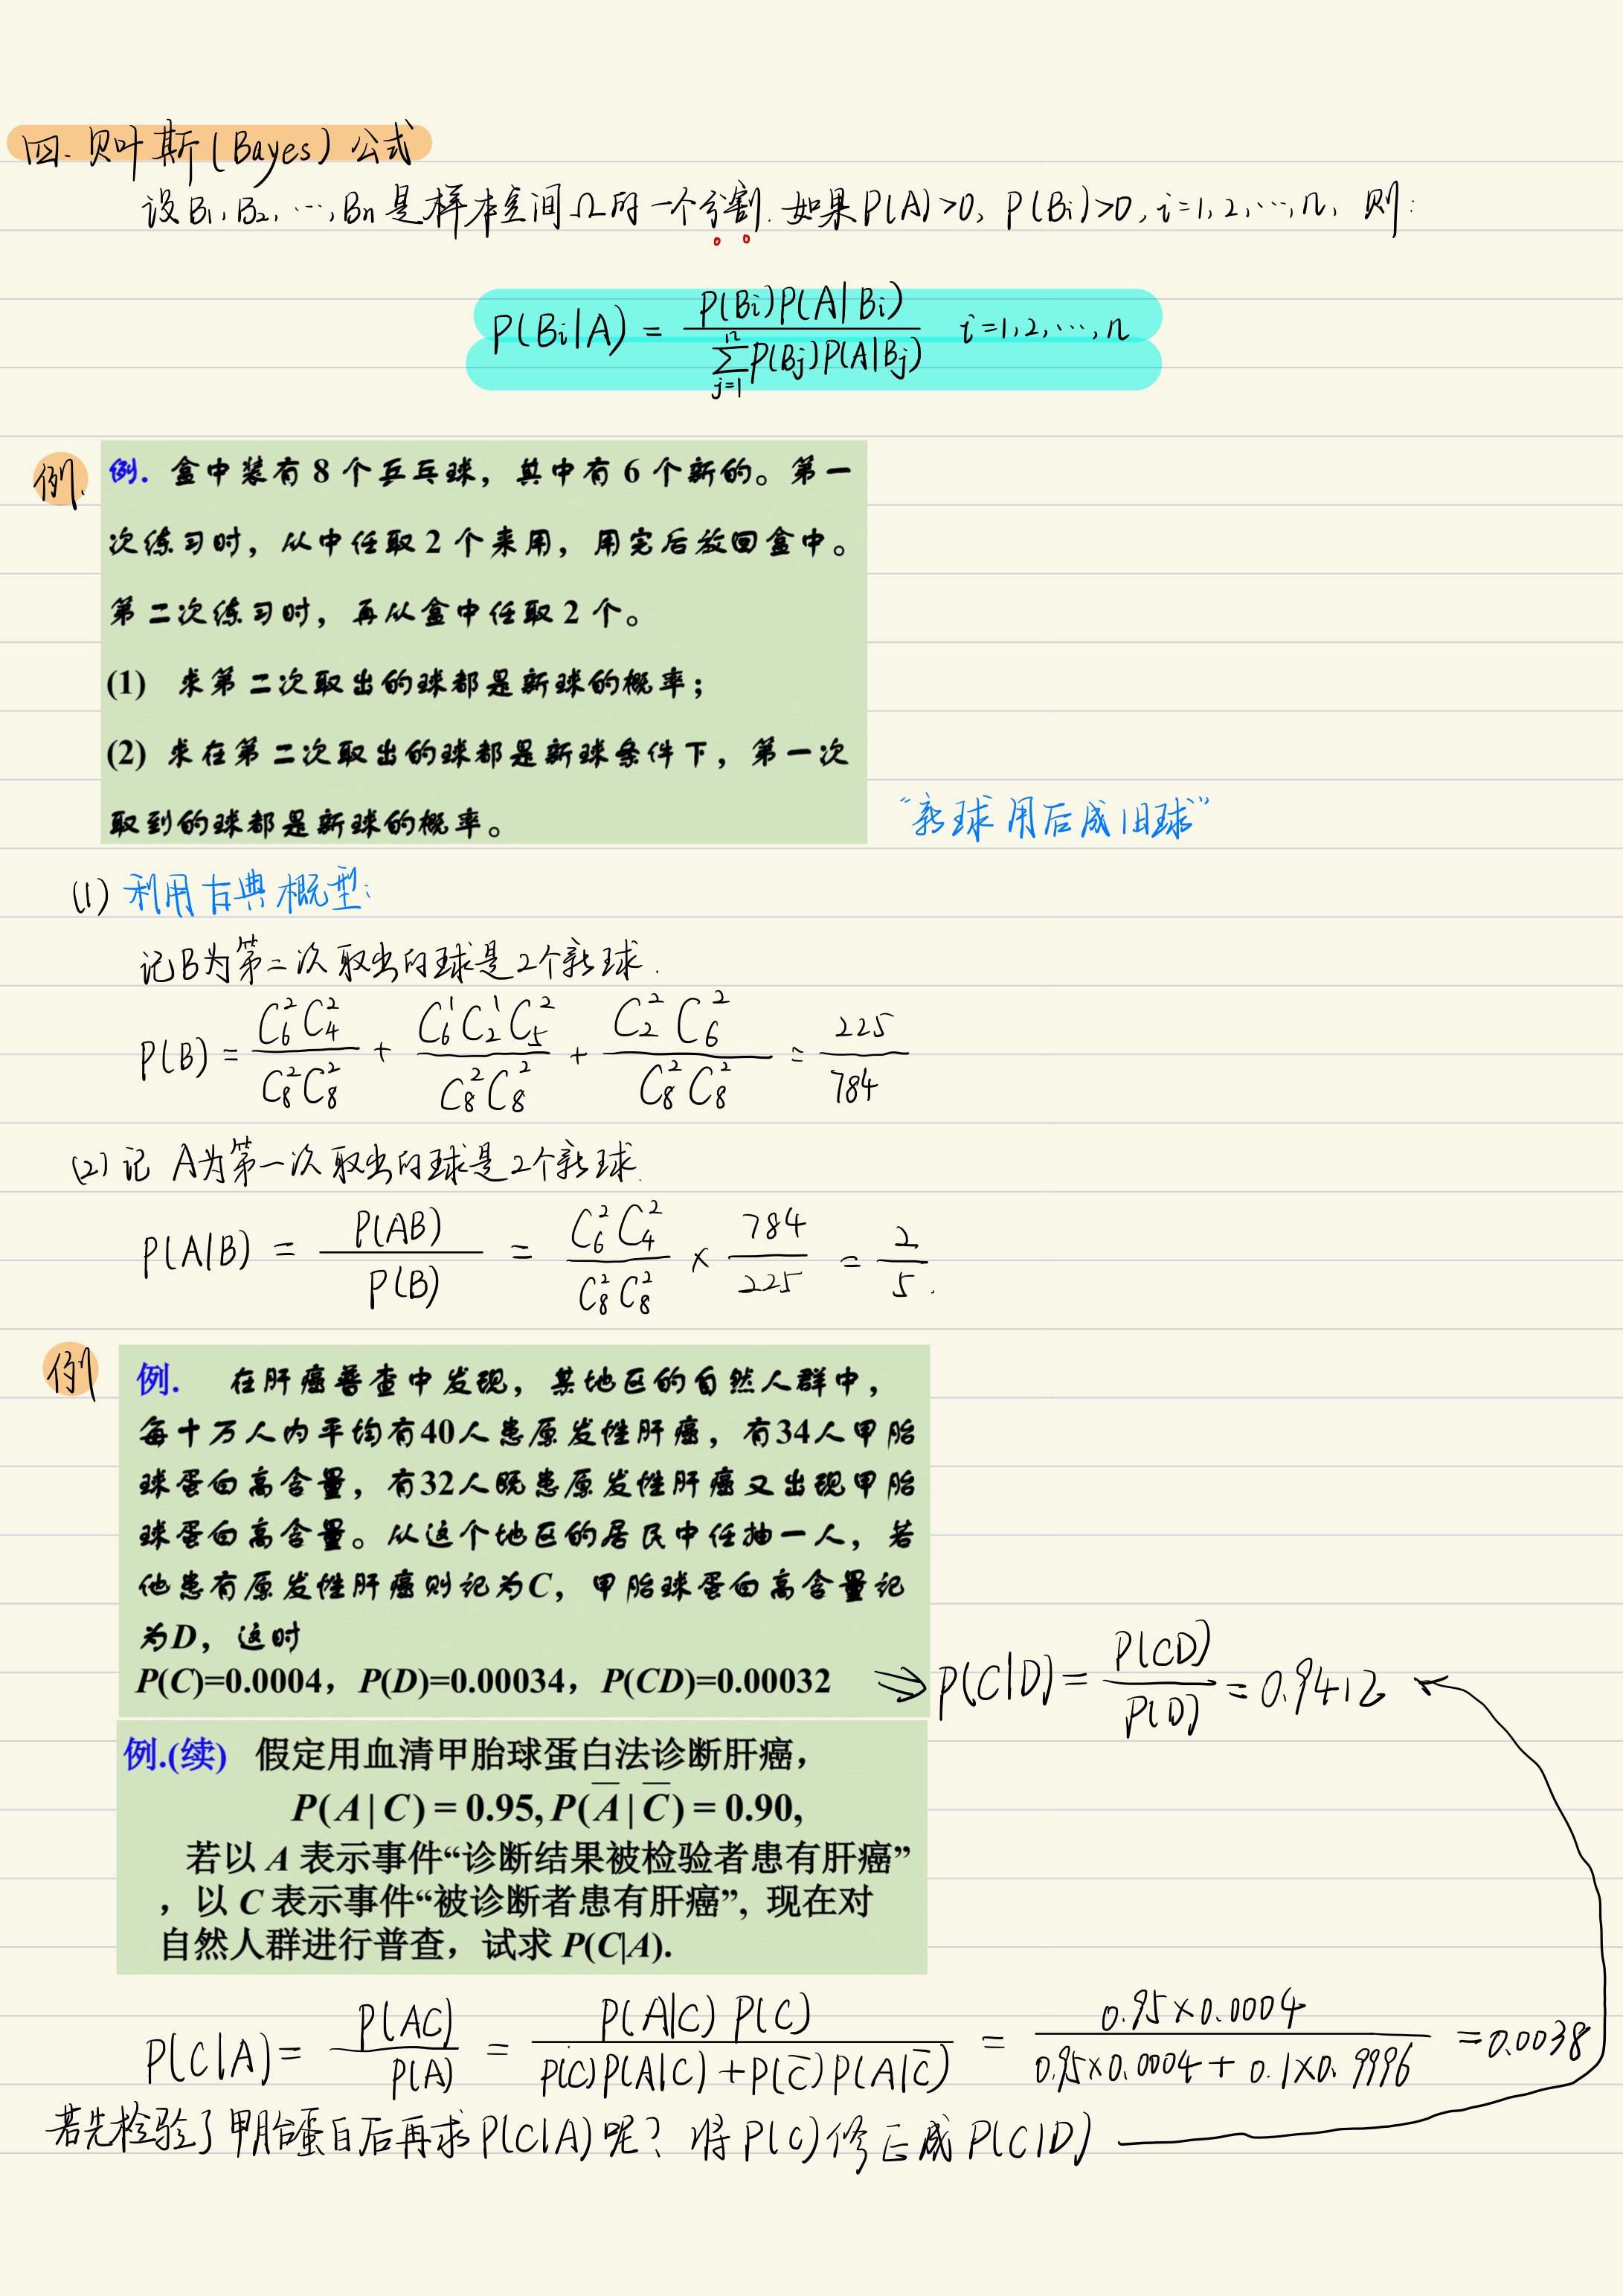 四. 贝叶斯(Bayes)公式
设B₁, B₂, ⋯, Bn 是样本空间Ω的一个分割. 如果P(A)>0, P(Bi)>0, i=1, 2, ⋯, n, 则:
P(Bi|A) = P(Bi)P(A|Bi) / ∑_{j=1}^{n} P(Bj)P(A|Bj)  i=1,2,⋯,n
例.
例. 盒中装有 8 个乒乓球，其中有 6 个新的。第一
次练习时，从中任取 2 个来用，用完后放回盒中。
第二次练习时，再从盒中任取 2 个。
(1) 求第二次取出的球都是新球的概率；
(2) 求在第二次取出的球都是新球条件下，第一次
取到的球都是新球的概率。
“新球用后成旧球”
(1) 利用古典概型:
记B为第二次取出的球是2个新球.
P(B) = C₆²C₄² / C₈²C₈² + C₆¹C₂¹C₅² / C₈²C₈² + C₂²C₆² / C₈²C₈² = 225 / 784
(2) 记 A为第一次取出的球是2个新球.
P(A|B) = P(AB) / P(B) = C₆²C₄² / C₈²C₈² × 784 / 225 = 2 / 5.
例
例. 在肝癌普查中发现，某地区的自然人群中，
每十万人内平均有40人患原发性肝癌，有34人甲胎
球蛋白高含量，有32人既患原发性肝癌又出现甲胎
球蛋白高含量。从这个地区的居民中任抽一人，若
他患有原发性肝癌则记为C，甲胎球蛋白高含量记
为D，这时
P(C)=0.0004，P(D)=0.00034，P(CD)=0.00032
⇒ P(C|D) = P(CD) / P(D) = 0.9412
例.(续) 假定用血清甲胎球蛋白法诊断肝癌，
P(A|C) = 0.95, P(A̅|C̅) = 0.90,
若以 A 表示事件“诊断结果被检验者患有肝癌”
，以 C 表示事件“被诊断者患有肝癌”, 现在对
自然人群进行普查，试求 P(C|A).
P(C|A) = P(AC) / P(A) = P(A|C) P(C) / P(C)P(A|C) + P(C̅)P(A|C̅) = 0.95×0.0004 / 0.95×0.0004 + 0.1×0.9996 = 0.0038
若先检验了甲胎蛋白后再求P(C|A)呢? 将P(C)修正成P(C|D)